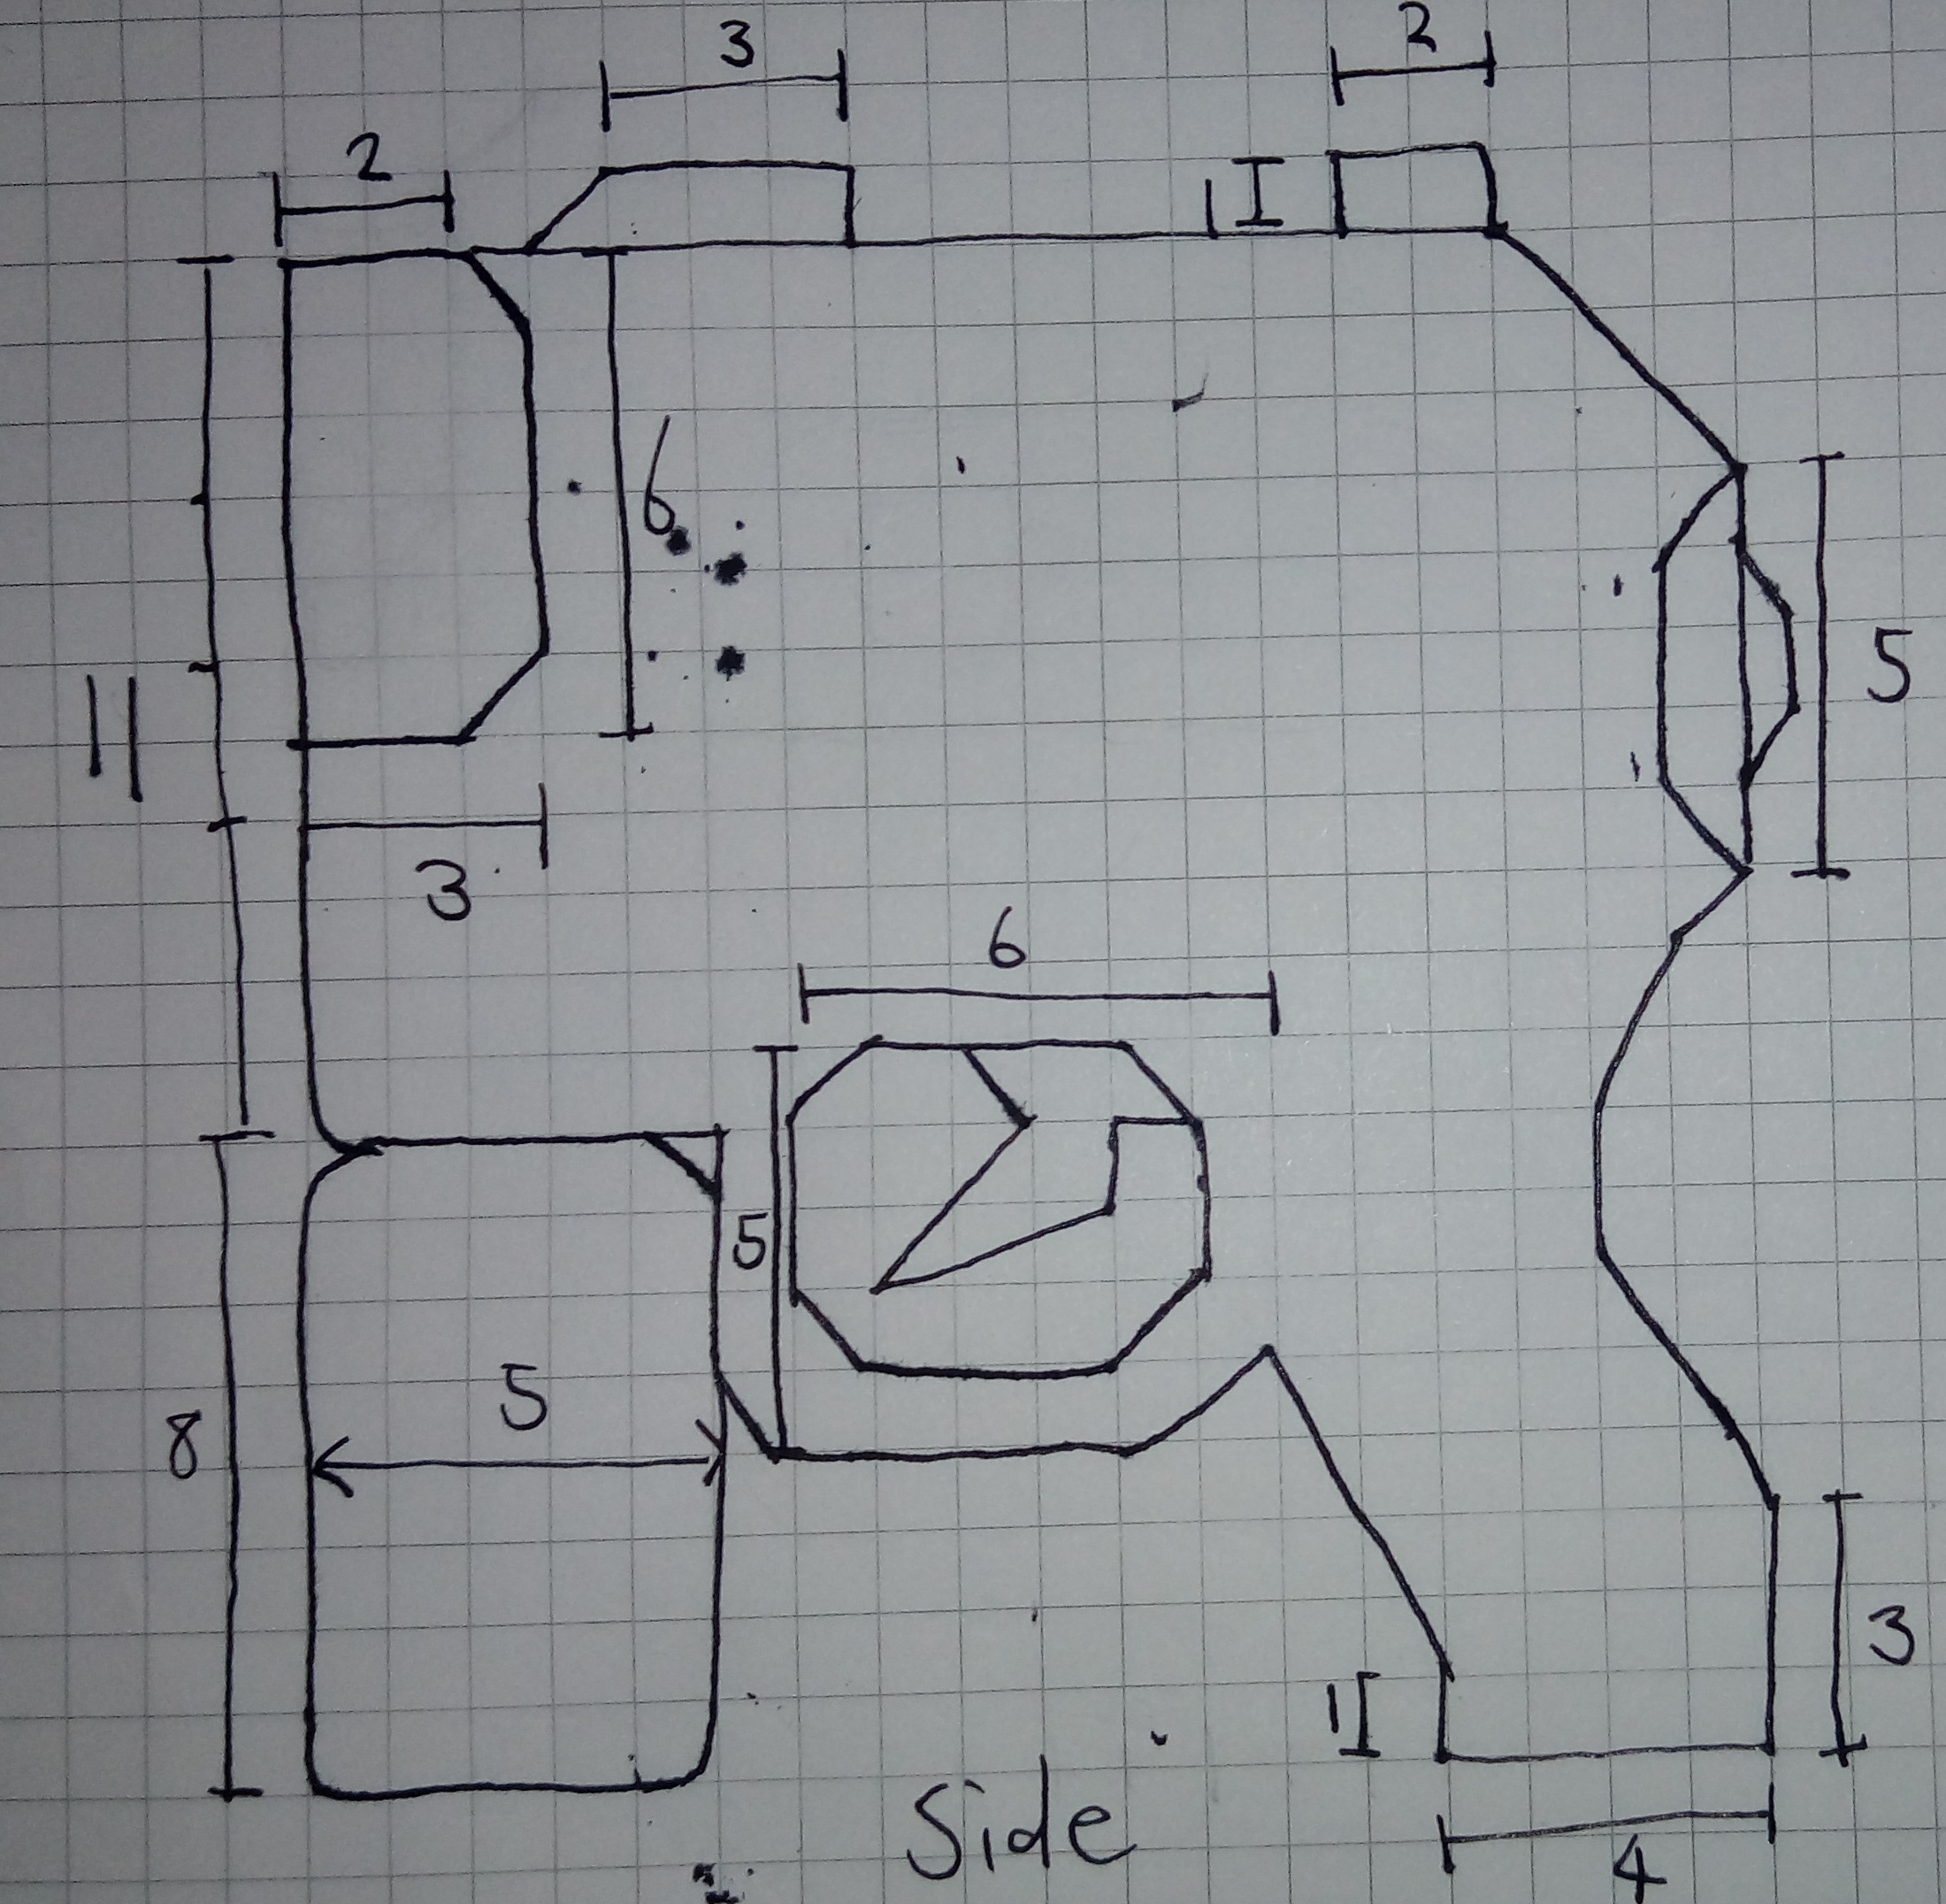 3
2
2
1
6
5
11
3
6
5
5
8
3
1
Side
4